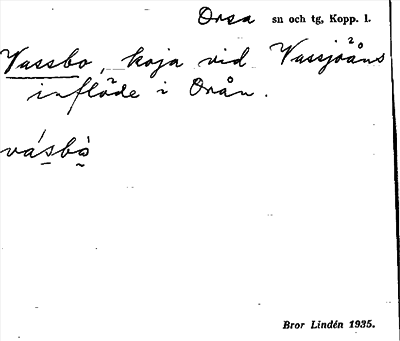 Orsa sn och tg, Kopp. l.
Vassbo, koja vid Vassjöåns
inflöde i Orån.
vásbò
Bror Lindén 1935.